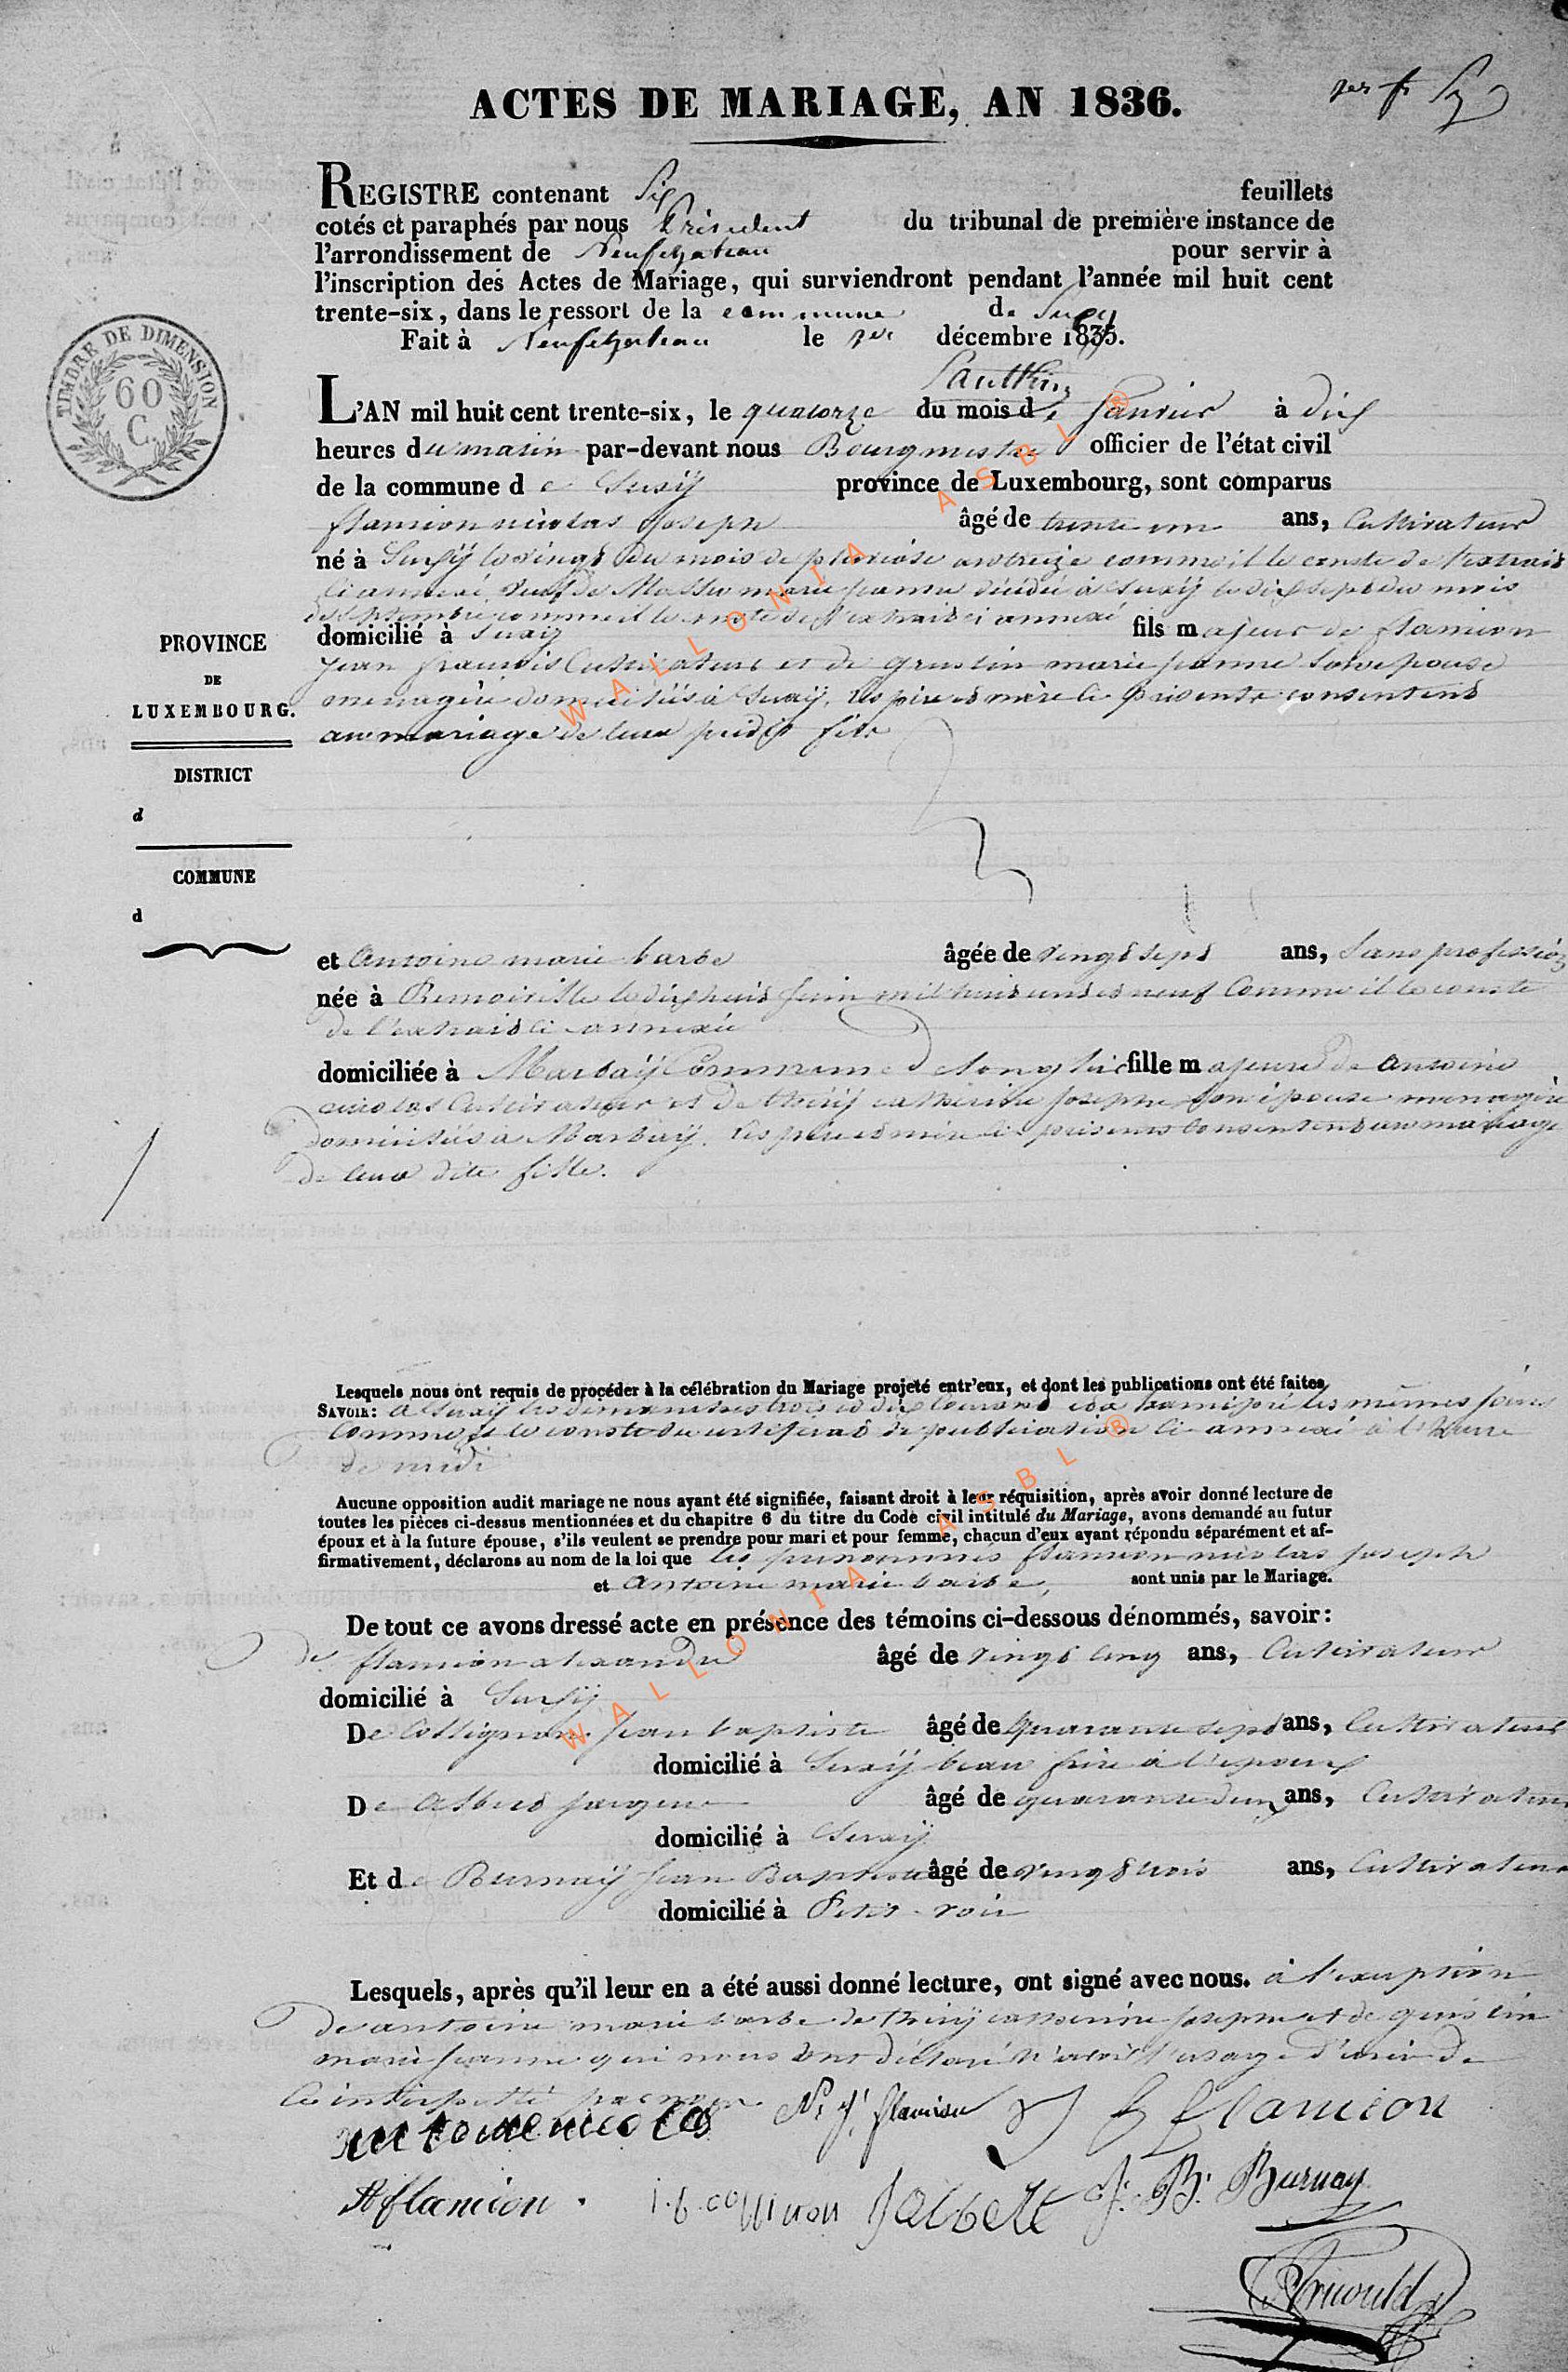 ACTES DE MARIAGE, AN 1836.
REGISTRE contenant Six feuillets
cotés et paraphés par nous Président du tribunal de première instance de
l'arrondissement de Neufchateau pour servir à
l'inscription des Actes de Mariage, qui surviendront pendant l'année mil huit cent
trente-six, dans le ressort de la commune de Suxy
Fait à Neufchateau le 1er décembre 1835.
TIMBRE DE DIMENSION
60
C.
L'AN mil huit cent trente-six, le quatorze du mois de Janvier à dix
heures du matin par-devant nous Bourgmestre officier de l'état civil
de la commune de Suxÿ province de Luxembourg, sont comparus
flamion nicolas Joseph âgé de trente un ans, Cultivateur
né à Suxÿ le vingt du mois de pluviose an treize comme il le conste de l'extrait
ci annexé, veuf de marie jeanne décédée à Suxÿ le dix sept du mois
de Septembre comme il le conste de l'extrait ci annexé
domicilié à Suxÿ fils majeur de flamion
jean françois Cultivateur et de marie jeanne Son épouse
ménagère domiciliés à Suxÿ, les père et mère ci présents consentent
au mariage de leur fils
PROVINCE
DE
LUXEMBOURG.
DISTRICT
d
COMMUNE
d
et Antoine marie barbe âgée de vingt sept ans, Sans profession
née à Remoiville le dix huit juin mil huit cent et neuf Comme il le conste
de l'extrait ci annexé
domiciliée à Marbaÿ Commune de longlier fille majeure de antoine
nicolas Cultivateur et de thirÿ catherine josephe son épouse ménagère
domiciliés à Marbaÿ. les père et mère ci présents Consentent au mariage
de leur dite fille.
Lesquels nous ont requis de procéder à la célébration du Mariage projeté entr'eux, et dont les publications ont été faites,
SAVOIR: à Suxÿ les dimanches trois et dix Courant et à les mêmes jours
Comme il le conste du certificat de publication ci annexé à l'heure
de midi
Aucune opposition audit mariage ne nous ayant été signifiée, faisant droit à leur réquisition, après avoir donné lecture de
toutes les pièces ci-dessus mentionnées et du chapitre 6 du titre du Code civil intitulé du Mariage, avons demandé au futur
époux et à la future épouse, s'ils veulent se prendre pour mari et pour femme, chacun d'eux ayant répondu séparément et af-
firmativement, déclarons au nom de la loi que les prénommés flamion nicolas joseph
et Antoine marie barbe, sont unis par le Mariage.
De tout ce avons dressé acte en présence des témoins ci-dessous dénommés, savoir:
de flamion alexandre âgé de vingt cinq ans, Cultivateur
domicilié à Suxÿ
De Collignon jean baptiste âgé de quarante sept ans, Cultivateur
domicilié à Suxÿ beau frère à l'époux
De Albert jacques âgé de quarante deux ans, Cultivateur
domicilié à Suxÿ
Et de Burnaÿ jean Baptiste âgé de vingt trois ans, Cultivateur
domicilié à Petit-voir
Lesquels, après qu'il leur en a été aussi donné lecture, ont signé avec nous. à l'exception
de antoine marie barbe de thirÿ catherine josephe et de
marie jeanne qui nous ont déclaré n'avoir l'usage d'écrire de
ce interpellé par nous
antoine nicolas N. J. flamion flamion
A flamion. j. b. collinon J albert J. B. Burnay
WALLONIA ASBL ®
WALLONIA ASBL ®